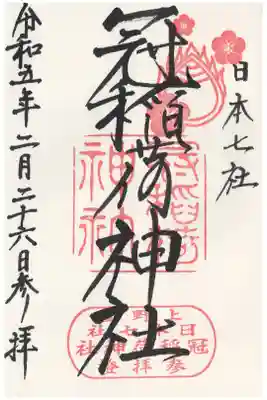 日本七社
冠稲荷神社
令和五年二月二十六日参拝
上野
日本七社
冠稲荷神社
参拝之